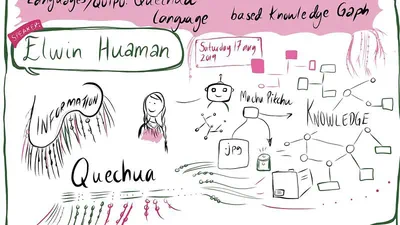 Languages/Quipu: Quechua
language based Knowledge Gaph
SPEAKER:
Elwin Huaman
Saturday 17 aug
2019
INFORMATION
Machu Pitchu
KNOWLEDGE
.jpg
Quechua